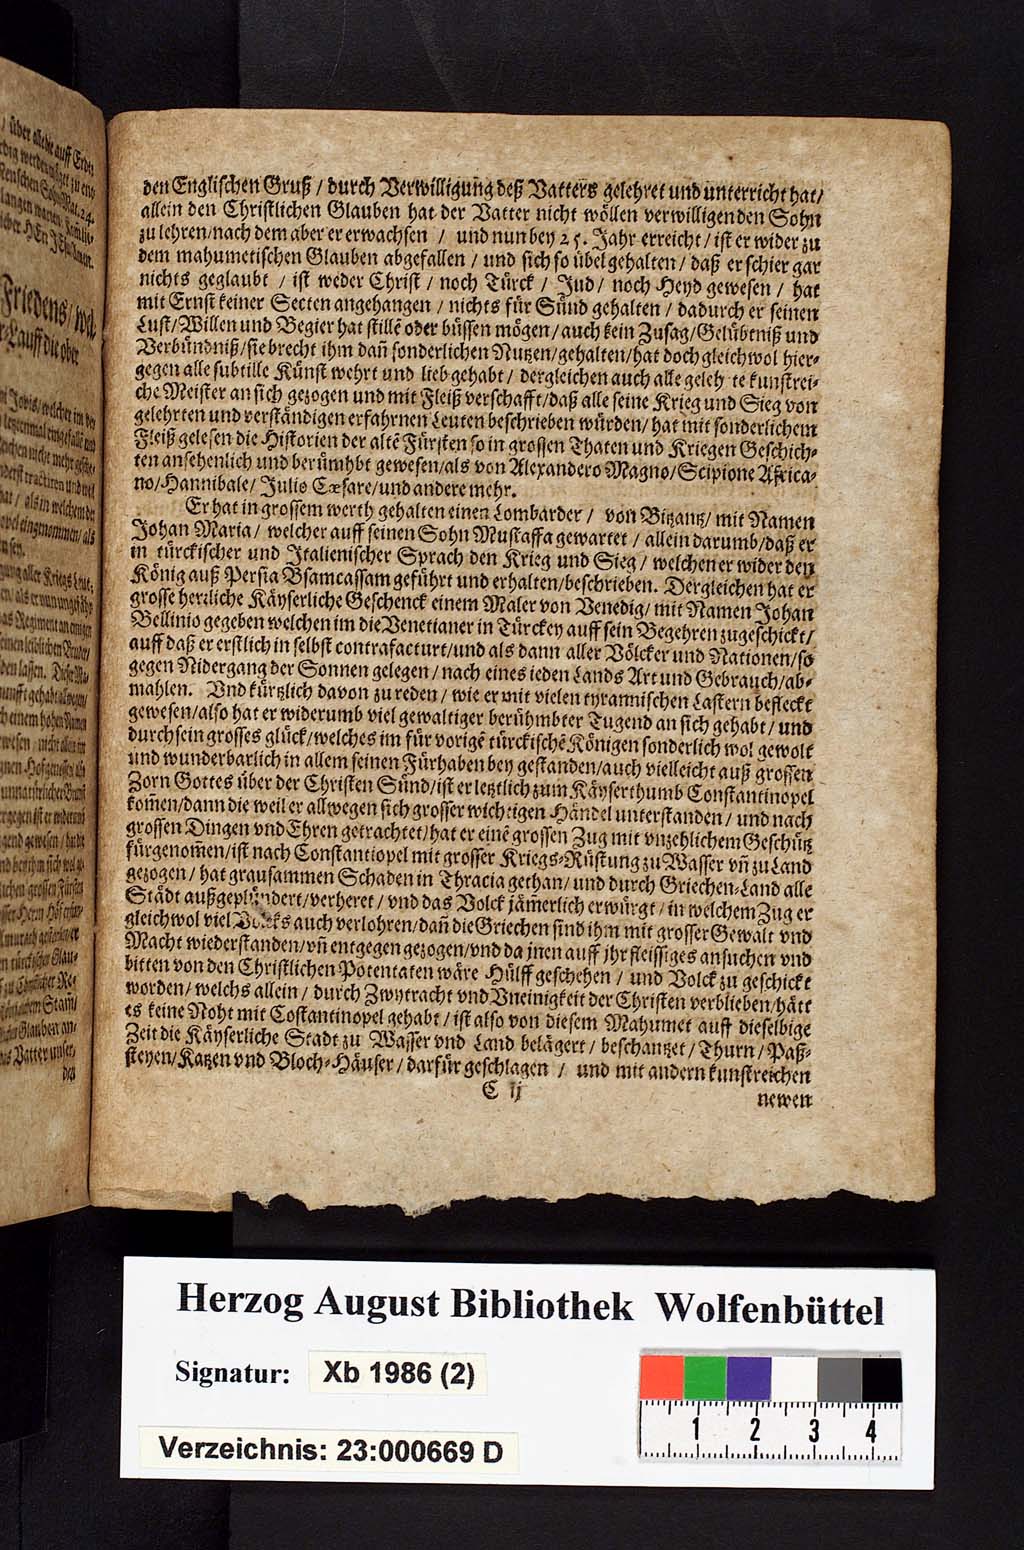 den Englischen Gruß / durch Verwilligung deß Vatters gelehret und unterricht hat /
allein den Christlichen Glauben hat der Vatter nicht wöllen verwilligen den Sohn
zu lehren / nach dem aber er erwachsen / und nun bey 25. Jahr erreicht / ist er wider zu
dem mahumetischen Glauben abgefallen / und sich so übel gehalten / daß er schier gar
nichts geglaubt / ist weder Christ / noch Türck / Jud / noch Heyd gewesen / hat
mit Ernst keiner Secten angehangen / nichts für Sünd gehalten / dadurch er seinen
Lust / Willen und Begier hat stillē oder büssen mögen / auch kein Zusag / Gelübtniß und
Verbündniß / sie brecht ihm dañ sonderlichen Nutzen / gehalten / hat doch gleichwol hier-
gegen alle subtille Künst wehrt und lieb gehabt / dergleichen auch alle geleh te kunstrei-
che Meister an sich gezogen und mit Fleiß verschafft / daß alle seine Krieg und Sieg von
gelehrten und verständigen erfahrnen Leuten beschrieben würden / hat mit sonderlichem
Fleiß gelesen die Historien der altē Fürsten so in grossen Thaten und Kriegen Geschich-
ten ansehenlich und berümhbt gewesen / als von Alexandero Magno / Scipione Africa-
no / Hannibale / Julio Cæsare / und andere mehr.
Er hat in grossem werth gehalten einen Lombarder / von Bitzantz / mit Namen
Johan Maria / welcher auff seinen Sohn Mustaffa gewartet / allein darumb / daß er
in türckischer und Italienischer Sprach den Krieg und Sieg / welchen er wider den
König auß Persia Vsamcassam geführt und erhalten / beschrieben. Dergleichen hat er
grosse herzliche Käyserliche Geschenck einem Maler von Venedig / mit Namen Johan
Bellinio gegeben welchen im die Venetianer in Türckey auff sein Begehren zugeschickt /
auff daß er erstlich in selbst contrafacturt / und als dann aller Völcker und Nationen / so
gegen Nidergang der Sonnen gelegen / nach eines ieden Lands Art und Gebrauch / ab-
mahlen. Vnd kürtzlich davon zu reden / wie er mit vielen tyrannischen Lastern befleckt
gewesen / also hat er widerumb viel gewaltiger berühmbter Tugend an sich gehabt / und
durch sein grosses glück / welches im für vorigē türckischē Königen sonderlich wol gewolt
und wunderbarlich in allem seinen Fürhaben bey gestanden / auch vielleicht auß grossen
Zorn Gottes über der Christen Sünd / ist er letztlich zum Käyserthumb Constantinopel
kom̃en / dann die weil er allwegen sich grosser wichtigen Händel unterstanden / und nach
grossen Dingen vnd Ehren getrachtet / hat er einē grossen Zug mit vnzehlichem Geschütz
fürgenom̃en / ist nach Constantiopel mit grosser Kriegs-Rüstung zu Wasser vñ zu Land
gezogen / hat grausammen Schaden in Thracia gethan / und durch Griechen-Land alle
Städt außgeplündert / verheret / vnd das Volck jäm̃erlich erwürgt / in welchem Zug er
gleichwol viel Volcks auch verlohren / dañ die Griechen sind ihm mit grosser Gewalt vnd
Macht wiederstanden / vñ entgegen gezogen / vnd da jnen auff jhr fleissiges ansuchen vnd
bitten von den Christlichen Potentaten wäre Hülff geschehen / und Volck zu geschickt
worden / welchs allein / durch Zwytracht vnd Vneinigkeit der Christen verblieben / hätt
es keine Noht mit Costantinopel gehabt / ist also von diesem Mahumet auff dieselbige
Zeit die Käyserliche Stadt zu Wasser vnd Land belägert / beschantzet / Thurn / Paß-
steyen / Katzen vnd Bloch-Häuser / darfür geschlagen / und mit andern kunstreichen
C ij
newen
Herzog August Bibliothek Wolfenbüttel
Signatur: Xb 1986 (2)
Verzeichnis: 23:000669 D
1 2 3 4